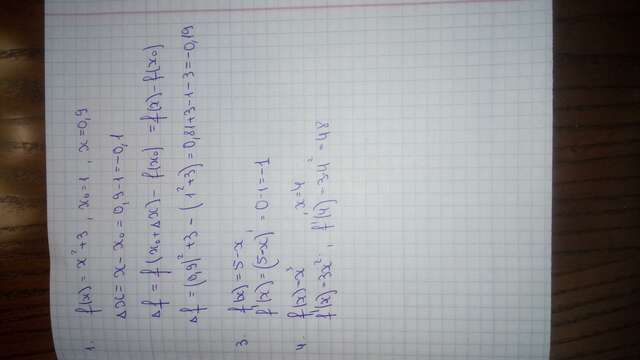 1. f(x) = x²+3 , x₀=1 , x=0,9
Δx = x - x₀ = 0,9-1 = -0,1
Δf = f(x₀+Δx) - f(x₀) = f(x) - f(x₀)
Δf = (0,9)²+3 - (1²+3) = 0,81+3-1-3 = -0,19
3 f(x) = 5-x
f'(x) = (5-x)' = 0-1 = -1
4. f(x) = x³ , x=4
f'(x) = 3x² , f'(4) = 3·4² = 48